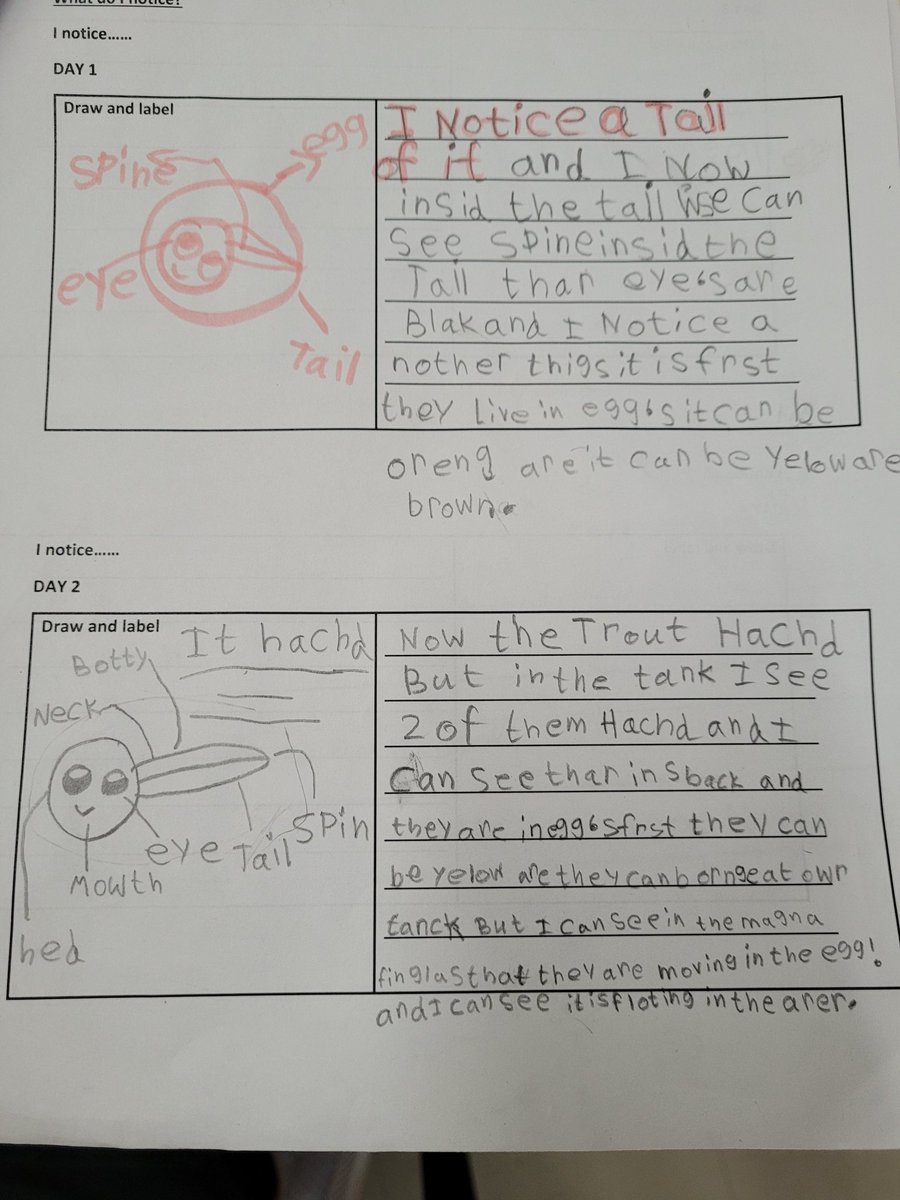 What do I notice?
I notice......
DAY 1
Draw and label
egg
Spine
eye
Tail
I Notice a Tail
of it and I Now
insid the tail wse can
see spine insid the
Tail than eye6s are
Blak and I Notice a
nother thigs it is frst
they live in egg6s it can be
oreng are it can be Yelow are
brown.
I notice......
DAY 2
Draw and label
It hachd
Botty
Neck
eye
Tail
Spin
Mowth
hed
Now the Trout Hachd
But in the tank I see
2 of them Hachd and I
can see thar ins back and
they are in egg6s frst they can
be yelow are they can b ornge at own
tanck But I can see in the magna
fin glas that they are moving in the egg!
and I can see it is floting in the arer.